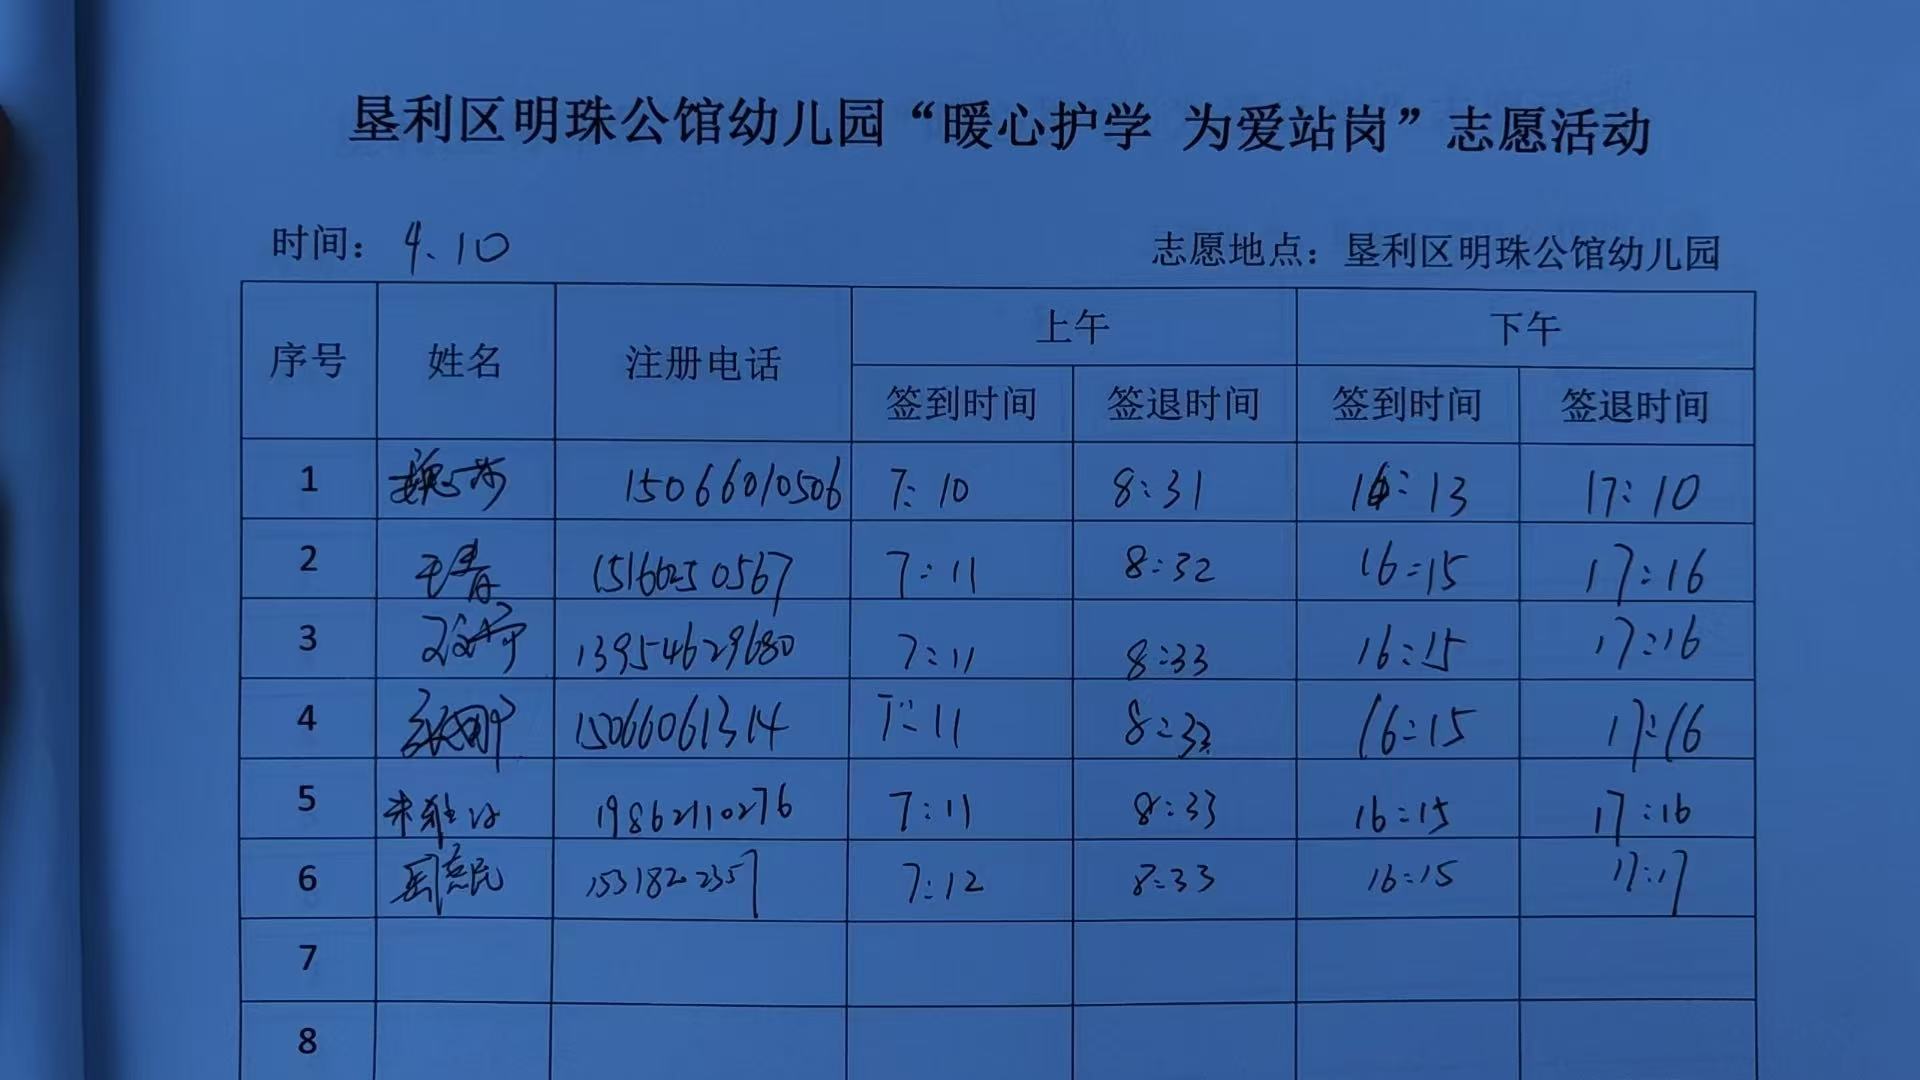 垦利区明珠公馆幼儿园“暖心护学 为爱站岗”志愿活动
时间：4.10 志愿地点：垦利区明珠公馆幼儿园
上午 下午
序号 姓名 注册电话
签到时间 签退时间 签到时间 签退时间
1 15066010506 7:10 8:31 16:13 17:10
2 王青 15166250567 7:11 8:32 16:15 17:16
3 13954629680 7:11 8:33 16:15 17:16
4 张娜 15066061314 7:11 8:33 16:15 17:16
5 19862110276 7:11 8:33 16:15 17:16
6 7:12 8:33 16:15 17:17
7
8